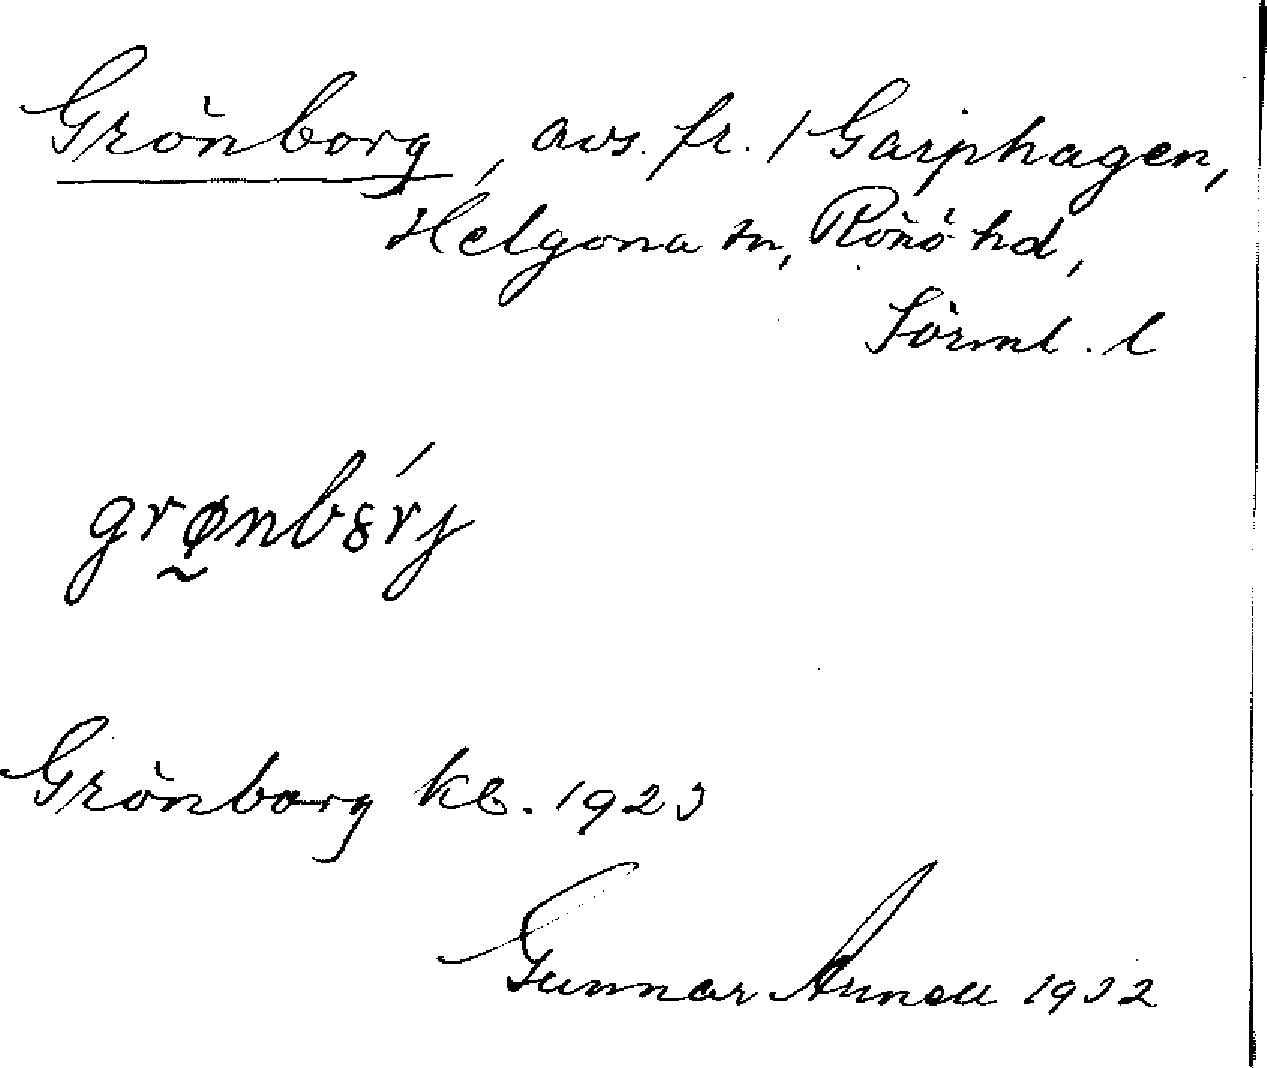 Grönborg, avs. fr. / Garphagen,
Helgona sn, Rönö hd,
Sörml. l
grønbȣ́rj
Grönborg kb. 1923
Gunnar Arnell 1932